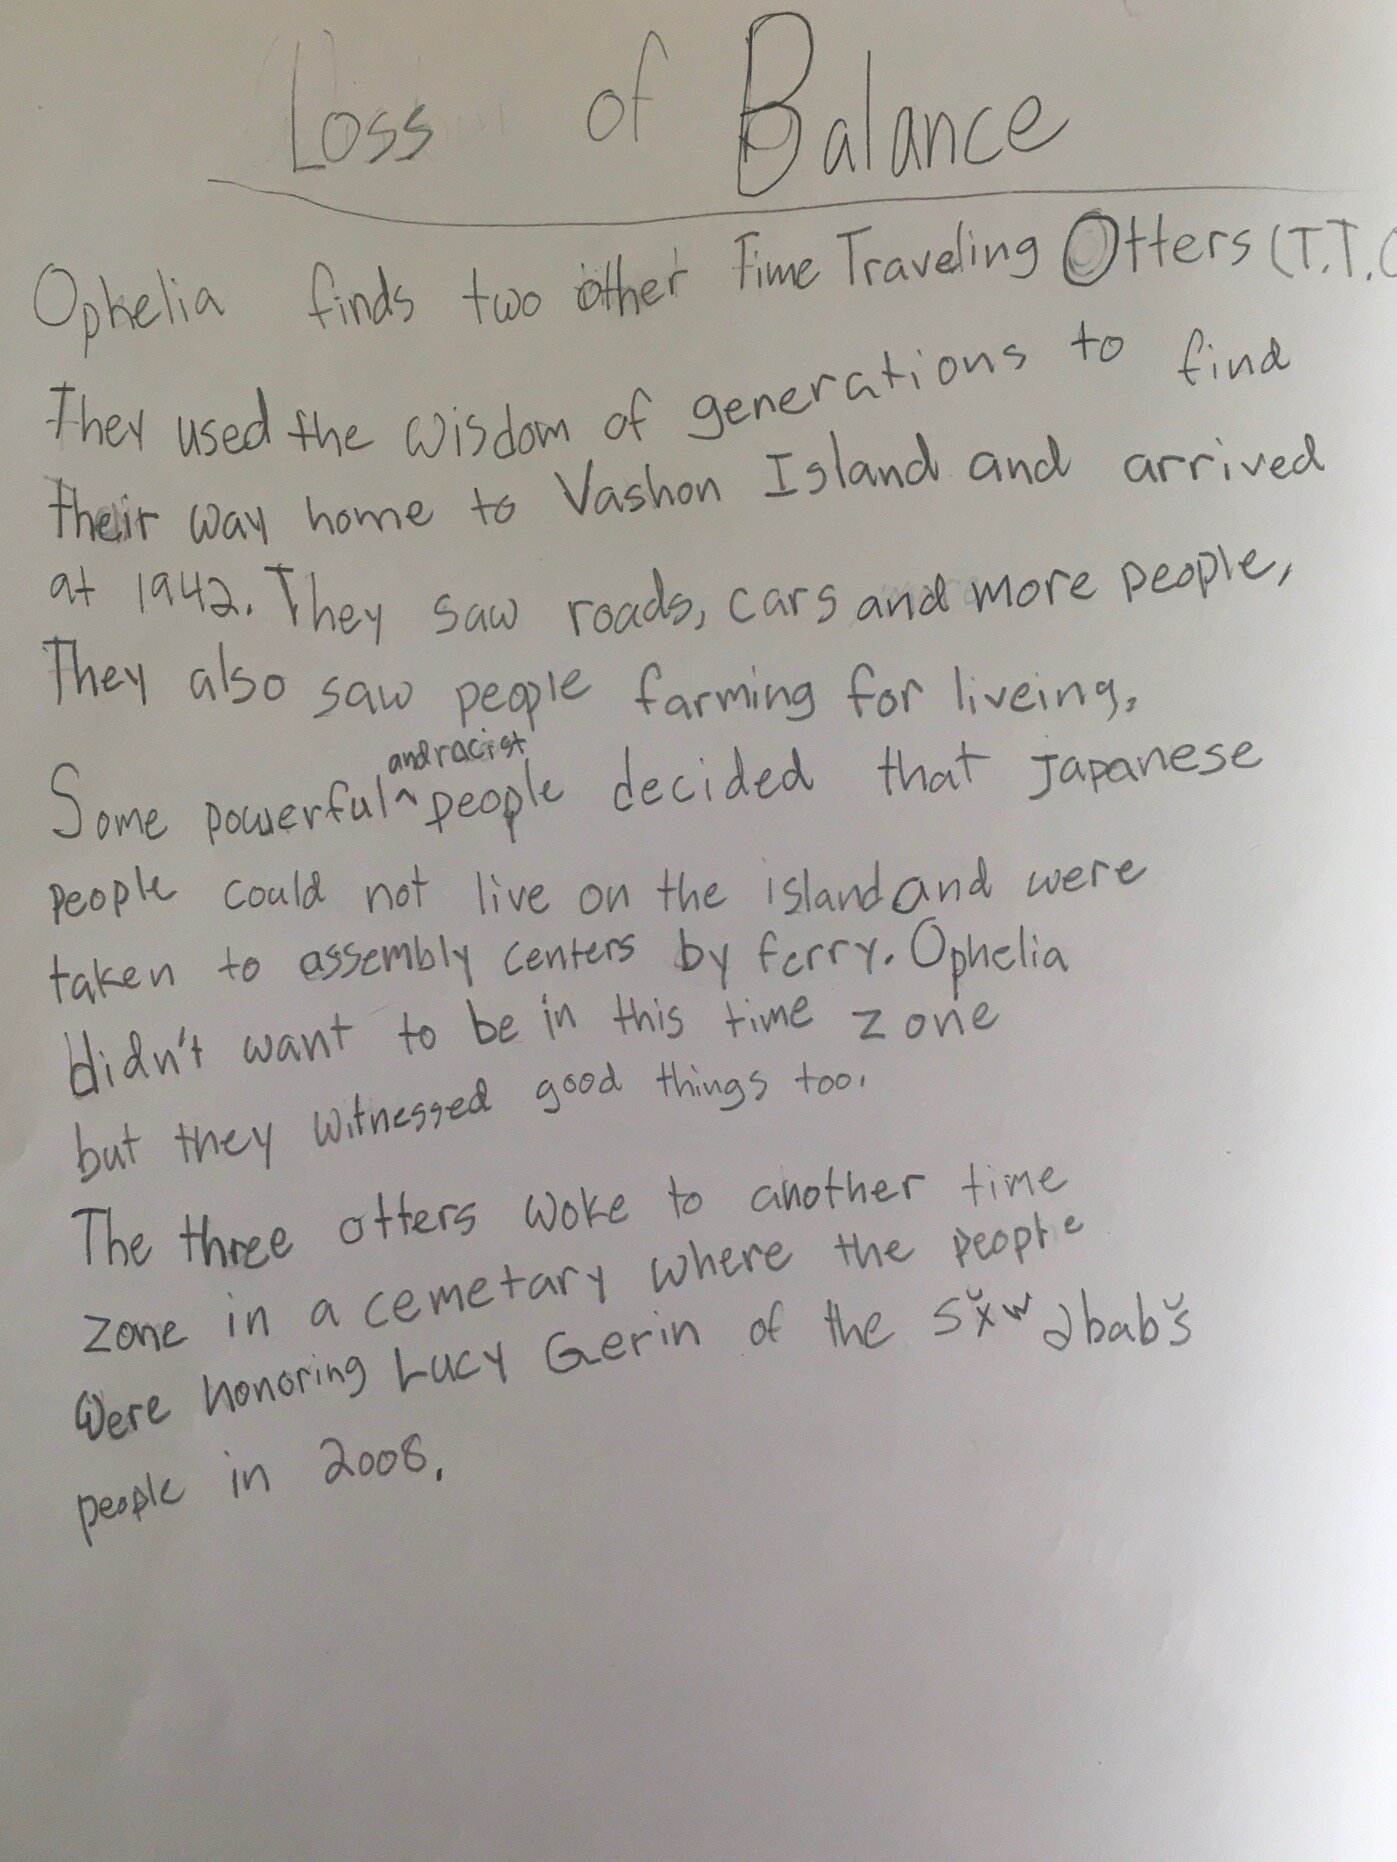 Loss of Balance
Ophelia finds two other Time Traveling Otters (T.T.O
They used the wisdom of generations to find
their way home to Vashon Island and arrived
at 1942. They saw roads, cars and more people,
They also saw people farming for liveing,
and racist
Some powerful ^ people decided that Japanese
people could not live on the island and were
taken to assembly centers by ferry. Ophelia
didn't want to be in this time zone
but they witnessed good things too.
The three otters woke to another time
zone in a cemetary where the people
were honoring Lucy Gerin of the sx̌ʷəbabš
people in 2008.